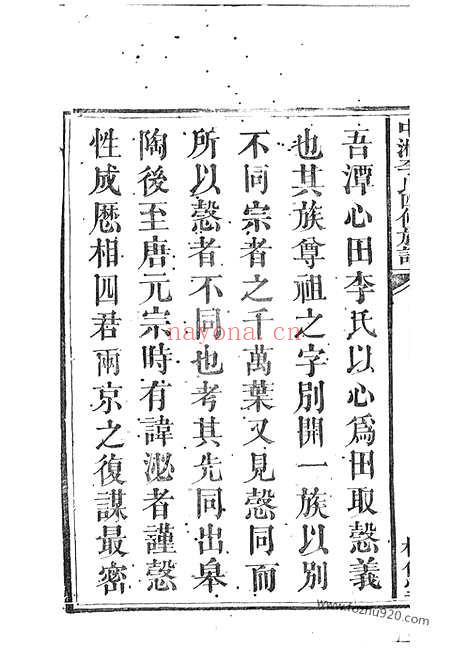 中湘李氏四修族譜
吾潭心田李氏以心爲田取慤義
也其族尊祖之字別開一族以別
不同宗者之千萬葉又見慤同而
所以慤者不同也考其先同出皋
陶後至唐元宗時有諱泌者謹慤
性成厯相四君兩京之復謀最密
nayona.cn
www.fozhu920.com